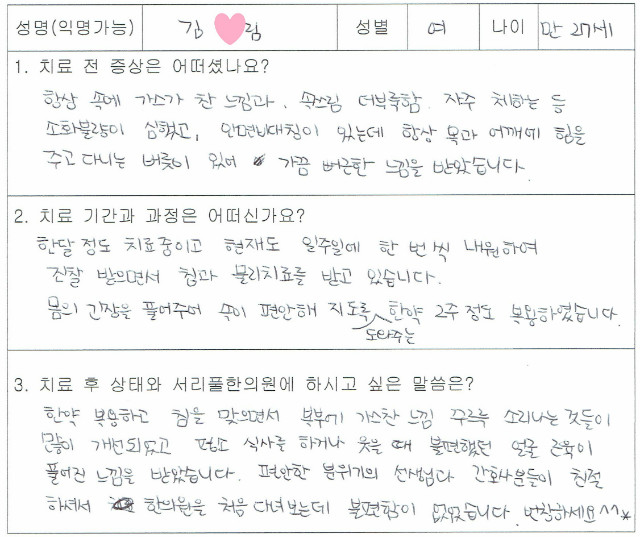 성명(익명가능) 김 림 성별 여 나이 만 27세
1. 치료 전 증상은 어떠셨나요?
항상 속에 가스가 찬 느낌과, 속쓰림 더부룩함. 자주 체하는 등
소화불량이 심했고, 안면비대칭이 있는데 항상 목과 어깨에 힘을
주고 다니는 버릇이 있어 가끔 뻐근한 느낌을 받았습니다.
2. 치료 기간과 과정은 어떠신가요?
한달 정도 치료중이고 현재도 일주일에 한 번씩 내원하여
진찰 받으면서 침과 물리치료를 받고 있습니다.
몸의 긴장을 풀어주어 속이 편안해 지도록 도와주는 한약 2주 정도 복용하였습니다.
3. 치료 후 상태와 서리풀한의원에 하시고 싶은 말씀은?
한약 복용하고 침을 맞으면서 복부에 가스찬 느낌 꾸르륵 소리나는 것들이
많이 개선되었고 평소 식사를 하거나 웃을 때 불편했던 얼굴 근육이
풀어진 느낌을 받았습니다. 편안한 분위기의 선생님과 간호사분들이 친절
하셔서 한의원을 처음 다녀보는데 불편함이 없었습니다. 번창하세요^^*